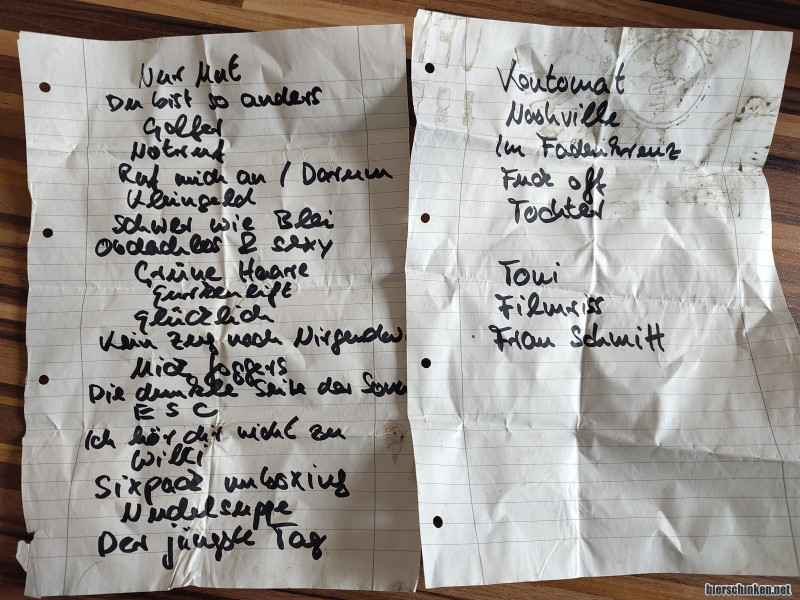 Nur Mut
Du bist so anders
Golfer
Notruf
Ruf mich an / Darum
Kleingeld
Schwer wie Blei
Obdachlos & sexy
Grüne Haare
Gurkenlift
glücklich
Kein Zug nach Nirgendwo
Mick Joggers
Die dunkle Seite der Sonne
E S C
Ich hör dir nicht zu
Willi
Sixpack unboxing
Nudelsuppe
Der jüngste Tag
Kautomat
Nashville
Im Fadenkreuz
Fuck off
Tochter
Toni
Filmriss
Frau Schmitt
bierschinken.net